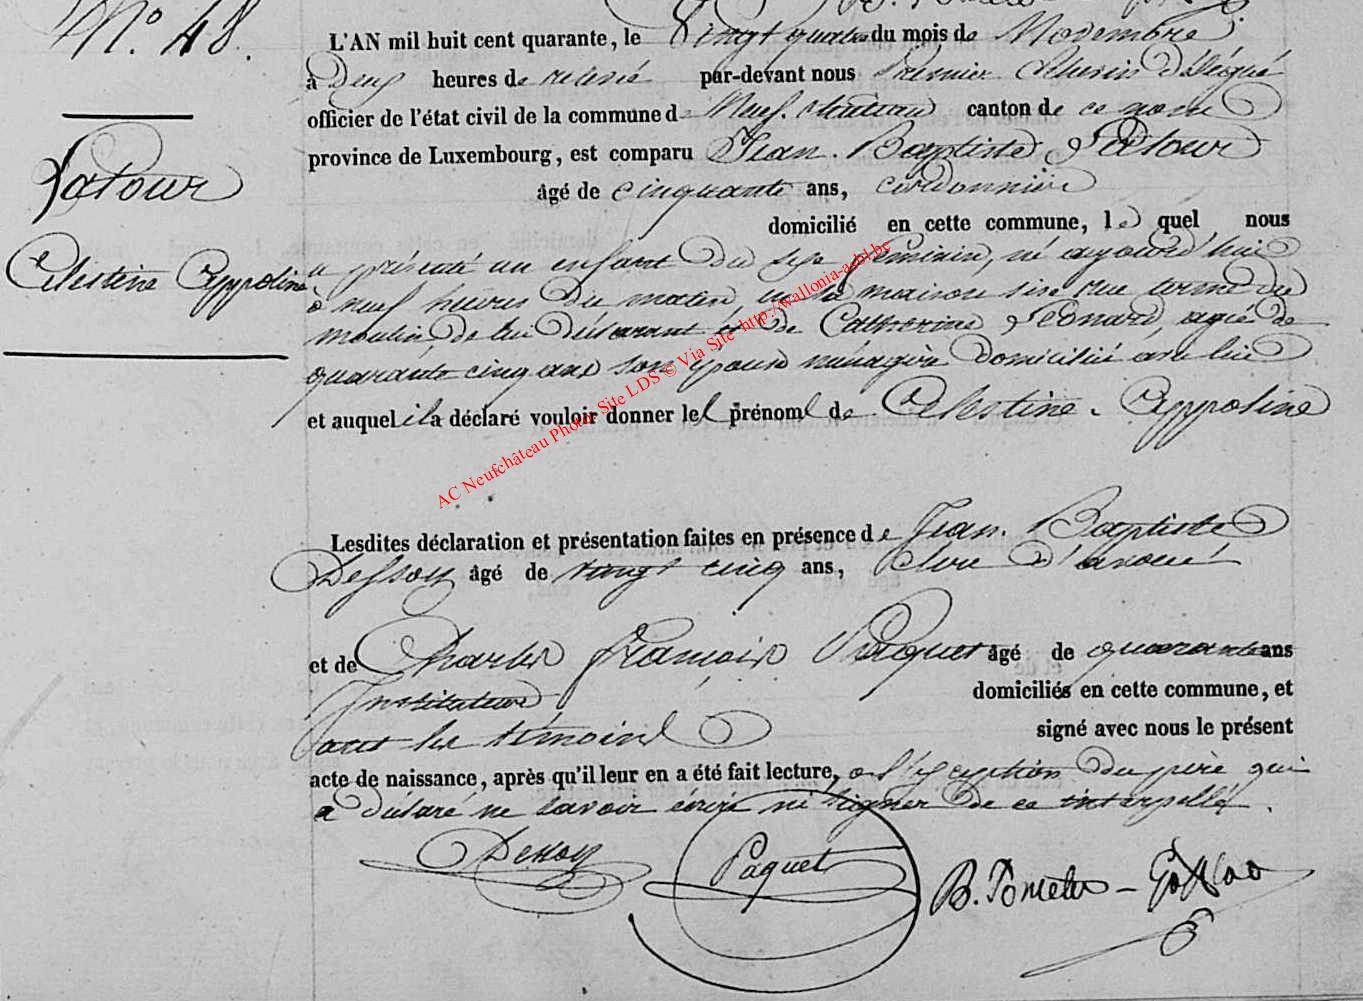 N.° 48.
Latour
Celestine Appoline
L'AN mil huit cent quarante, le Vingt quatre du mois de Novembre
à Deux heures de relevé par-devant nous Premier Echevin Délégué
officier de l'état civil de la commune de Neuf-chateau canton de ce nom
province de Luxembourg, est comparu Jean-Baptiste Latour
âgé de cinquante ans, cordonnier
domicilié en cette commune, le quel nous
a présenté un enfant du sexe féminin, né aujourd'hui
à neuf heures du matin en sa maison sise rue terme du
moulin de lui déclarant et de Catherine Leonard agée de
quarante cinq ans son épouse ménagère domiciliée avec lui
et auquel il a déclaré vouloir donner les prénoms de Celestine-Appoline
Lesdites déclaration et présentation faites en présence de Jean-Baptiste
Dessoy âgé de vingt cinq ans, clerc d'avoué
et de Charles François Paquet âgé de quarante ans
Instituteur domiciliés en cette commune, et
ont les témoins signé avec nous le présent
acte de naissance, après qu'il leur en a été fait lecture, à l'exception du père qui
a déclaré ne savoir écrire ni signer de ce interpellé.
Dessoy Paquet B. Poncelet
AC Neufchâteau Photo Site LDS © Via Site http://wallonia-asbl.be